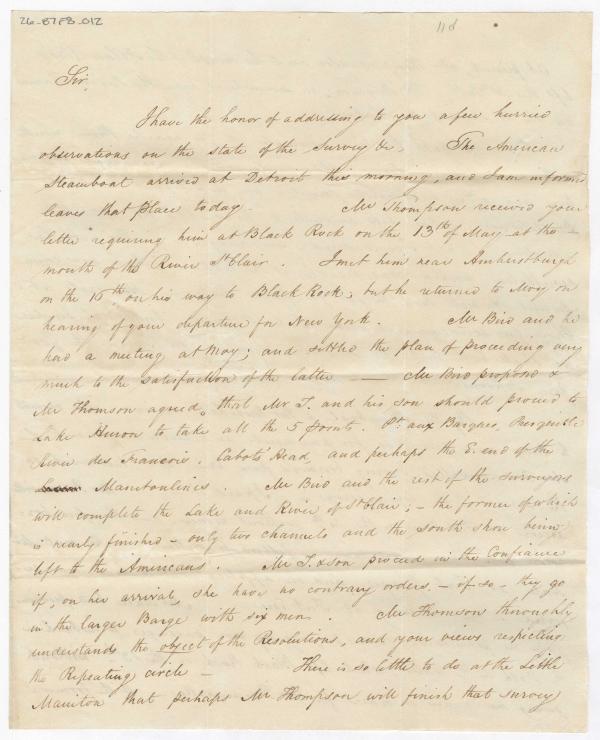 26-87F8-012
118
Sir,
I have the honor of addressing to you a few hurried
observations on the state of the Survey &c. The American
Steamboat arrived at Detroit this morning, and I am informed
leaves that place today. Mr Thompson received your
letter requiring him at Black Rock on the 13th of May at the
mouth of the River St Clair. I met him near Amherstburgh
on the 16th, on his way to Black Rock; but he returned to Moy on
hearing of your departure for New York. Mr Bird and he
had a meeting at Moy; and settled the plan of proceeding very
much to the satisfaction of the latter — Mr Bird proposed &
Mr Thomson agreed, that Mr T. and his son should proceed to
Lake Huron to take all the 5 points. Pt. aux Barques, Presquisle
River des Francois, Cabots Head, and perhaps the E. end of the
Manitoulines. Mr Bird and the rest of the surveyors
will complete the Lake and River of St Clair; - the former of which
is nearly finished - only two channels and the south shore being
left to the Americans. Mr T. & son proceed in the Confiance
if, on her arrival, she have no contrary orders - if so - they go
in the larger Barge with six men. Mr Thomson thoroughly
understands the object of the Resolutions, and your views respecting
the Repeating circle - There is so little to do at the Little
Maniton that perhaps Mr Thompson will finish that survey